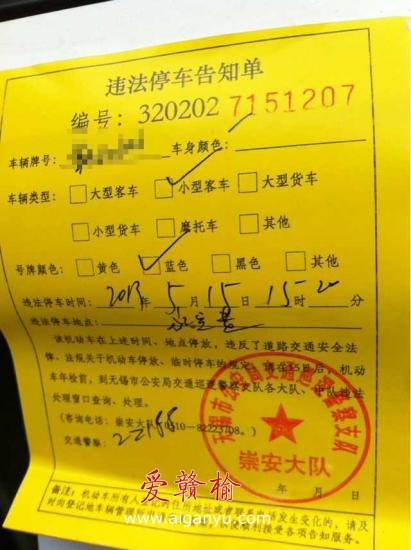 违法停车告知单
编号：320202 7151207
车辆牌号： 车身颜色：
车辆类型： 大型客车 小型客车 大型货车
小型货车 摩托车 其他
号牌颜色： 黄色 蓝色 黑色 其他
违法停车时间： 2013年 5月 15日 15时 20分
违法停车地点：
该机动车在上述时间、地点停放，违反了道路交通安全法
律、法规关于机动车停放、临时停车的规定。请在15日后，机动
车年检前，到无锡市公安局交通巡逻警察支队各大队、中队违法
处理窗口查询、处理。
（咨询电话：崇安大队：0510-82223708。）
交通警察：
无锡市公安局交通巡逻警察支队
崇安大队
年 月 日
备注：机动车所有人登记的住所地址或者 发生变化的，请及
时向登记地车辆管理 以便顺利接受各项告知服务。
爱赣榆
www.aiganyu.com